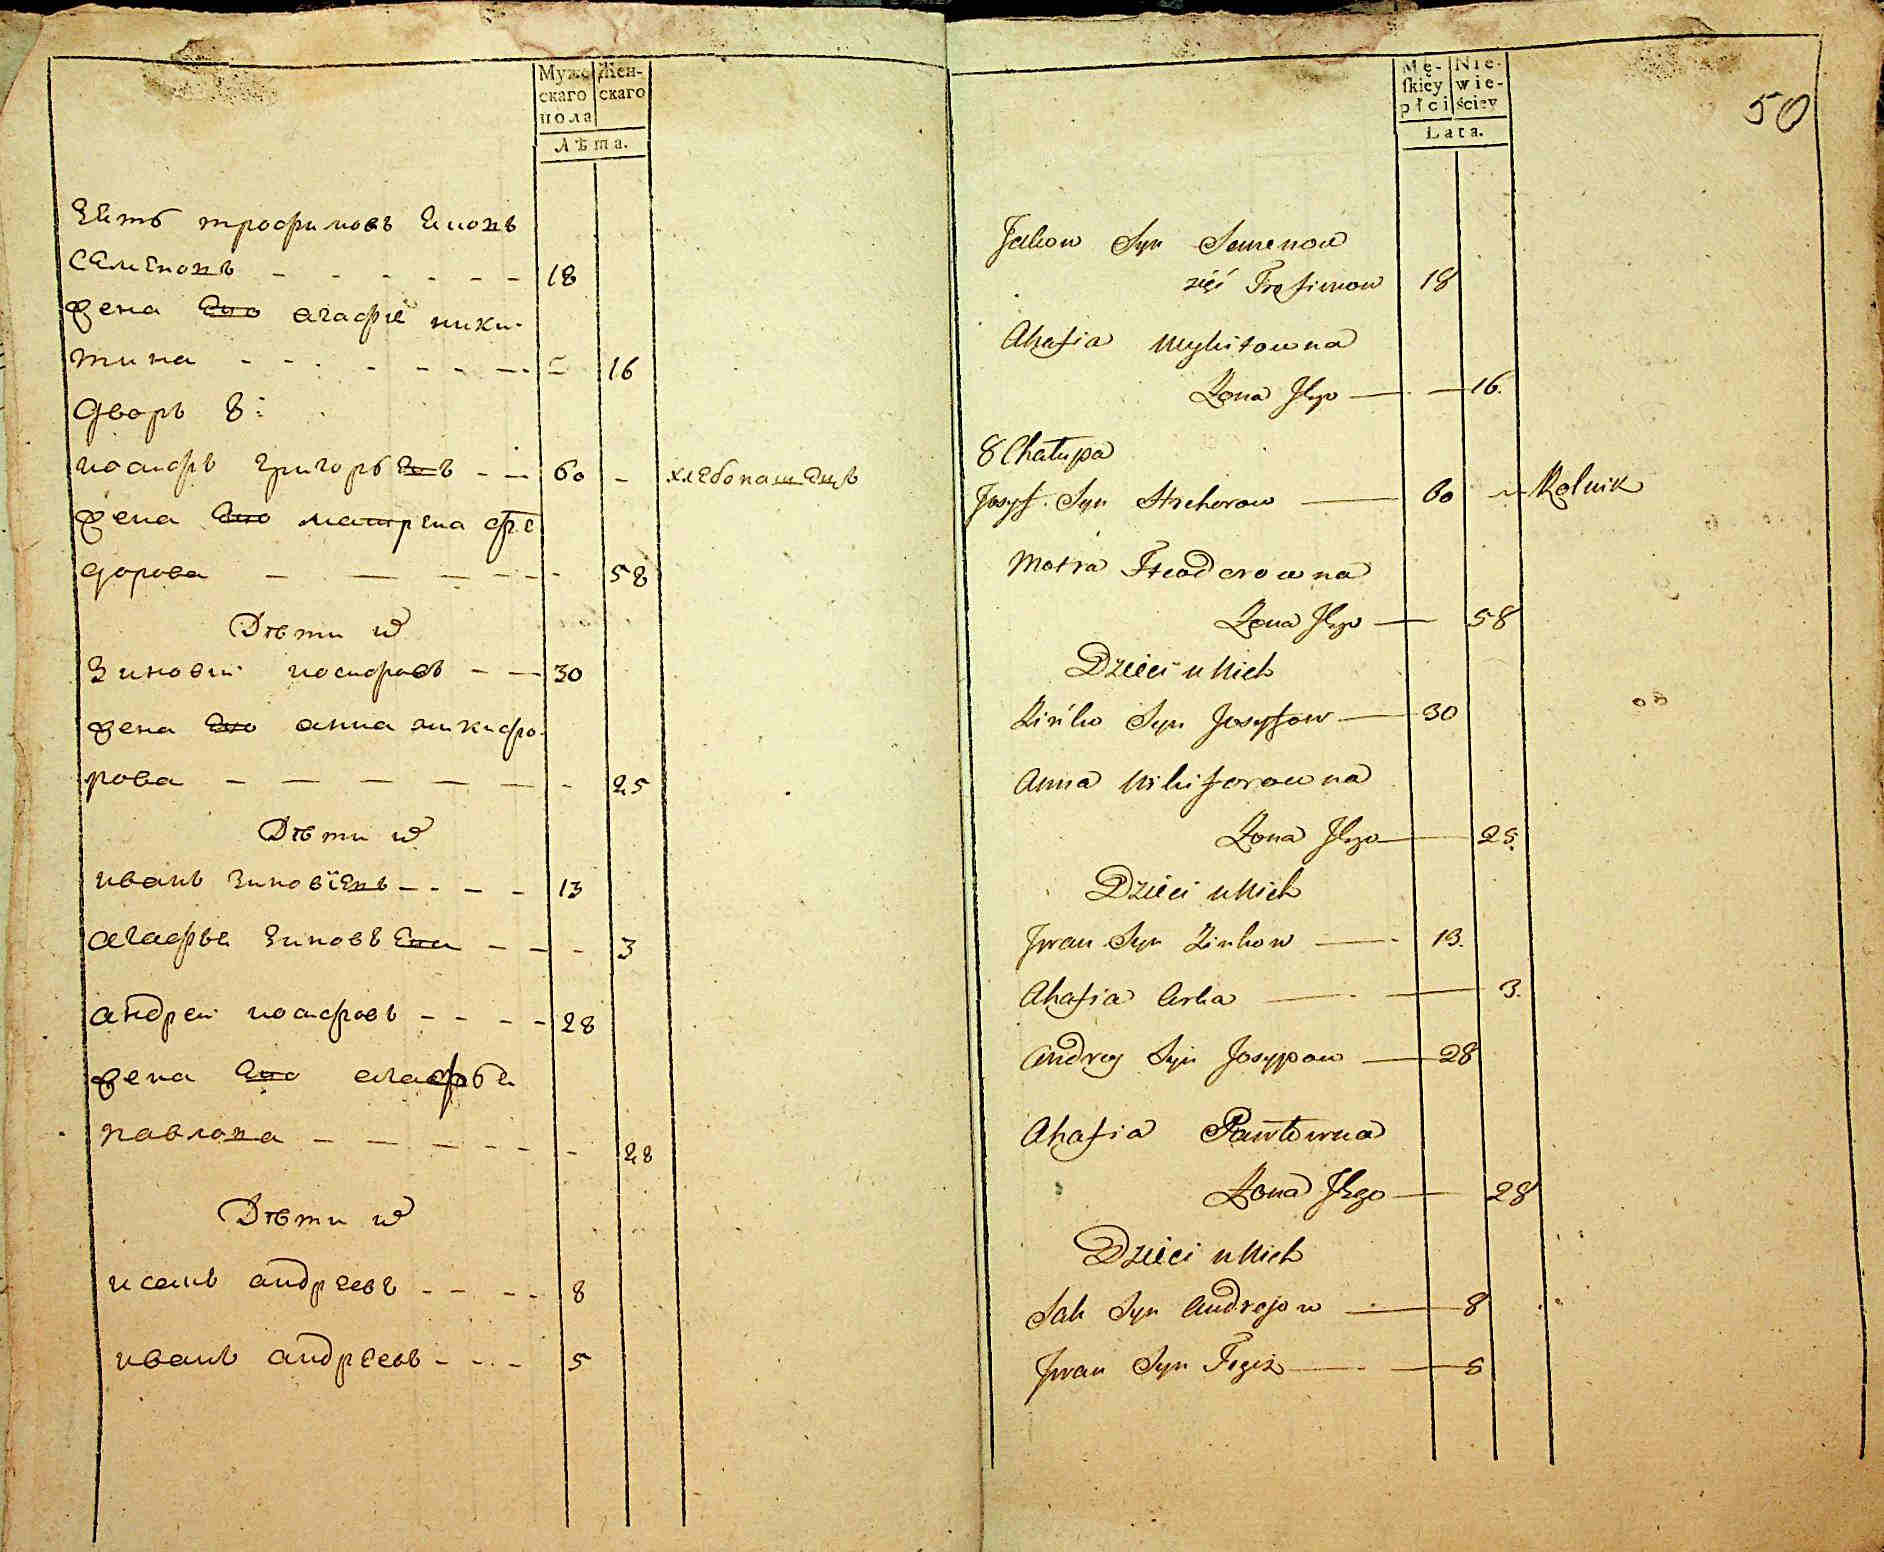 Мужс
скаго
пола
Жен-
скаго
Лѣта.
зять трофимовъ
18
жена его агафiе ники-
тина 16
дворъ 8:
иосифъ григорьевъ 60 - хлебопашецъ
жена его матрена фе
дорова 58
Дѣти их
Зиновий иосифовъ 30
жена его анна никифо-
рова 25
Дѣти их
иванъ зиновїевъ 13
агафья зиновъева 3
андрей иосифовъ 28
жена его агафья
павлова 28
Дѣти их
исакъ андреевъ 8
иванъ андреевъ 5
Mę-
skiey
płci
Nie-
wie-
ściey
Lata.
50
Jakow Syn Semenow
zięć Trofimow 18
Ahafia Mykitowna
Żona Jego 16.
8 Chałupa
Josyf Syn Hrehorow 60 Rolnik
Motra Fteodorowna
Żona Jego 58
Dzieci u Nich
Zińko Syn Josyfow 30
Anna Nikiforowna
Żona Jego 25.
Dzieci u Nich
Jwan Syn Zinkow 13.
Ahafia Corka 3.
Andrey Syn Josypow 28
Ahafia Pawłowna
Żona Jego 28
Dzieci u Nich
Sak Syn Andrejow 8
Jwan Syn Tegiż 5